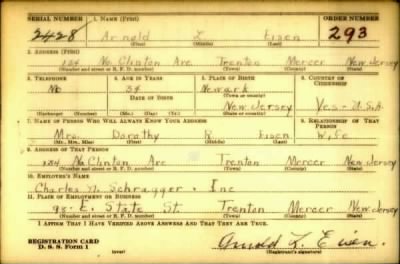 SERIAL NUMBER 1. NAME (Print) ORDER NUMBER
2428 Arnold L Eisen 293
(First) (Middle) (Last)
2. ADDRESS (Print)
134 No. Clinton Ave Trenton Mercer New Jersey
(Number and street or R. F. D. number) (Town) (County) (State)
3. TELEPHONE 4. AGE IN YEARS 5. PLACE OF BIRTH 6. COUNTRY OF CITIZENSHIP
No 34 Newark
DATE OF BIRTH (Town or county)
New Jersey Yes - U.S.A
(Exchange) (Number) (Mo.) (Day) (Yr.) (State or country)
7. NAME OF PERSON WHO WILL ALWAYS KNOW YOUR ADDRESS 8. RELATIONSHIP OF THAT PERSON
Mrs. Dorothy R Eisen Wife
(Mr., Mrs., Miss) (First) (Middle) (Last)
9. ADDRESS OF THAT PERSON
134 No Clinton Ave Trenton Mercer New Jersey
(Number and street or R. F. D. number) (Town) (County) (State)
10. EMPLOYER'S NAME
Charles M Schragger. Inc
11. PLACE OF EMPLOYMENT OR BUSINESS
E. State St. Trenton Mercer New Jersey
(Number and street or R. F. D. number) (Town) (County) (State)
I AFFIRM THAT I HAVE VERIFIED ABOVE ANSWERS AND THAT THEY ARE TRUE.
REGISTRATION CARD
D. S. S. Form 1 (over) Arnold L. Eisen
(Registrant's signature)